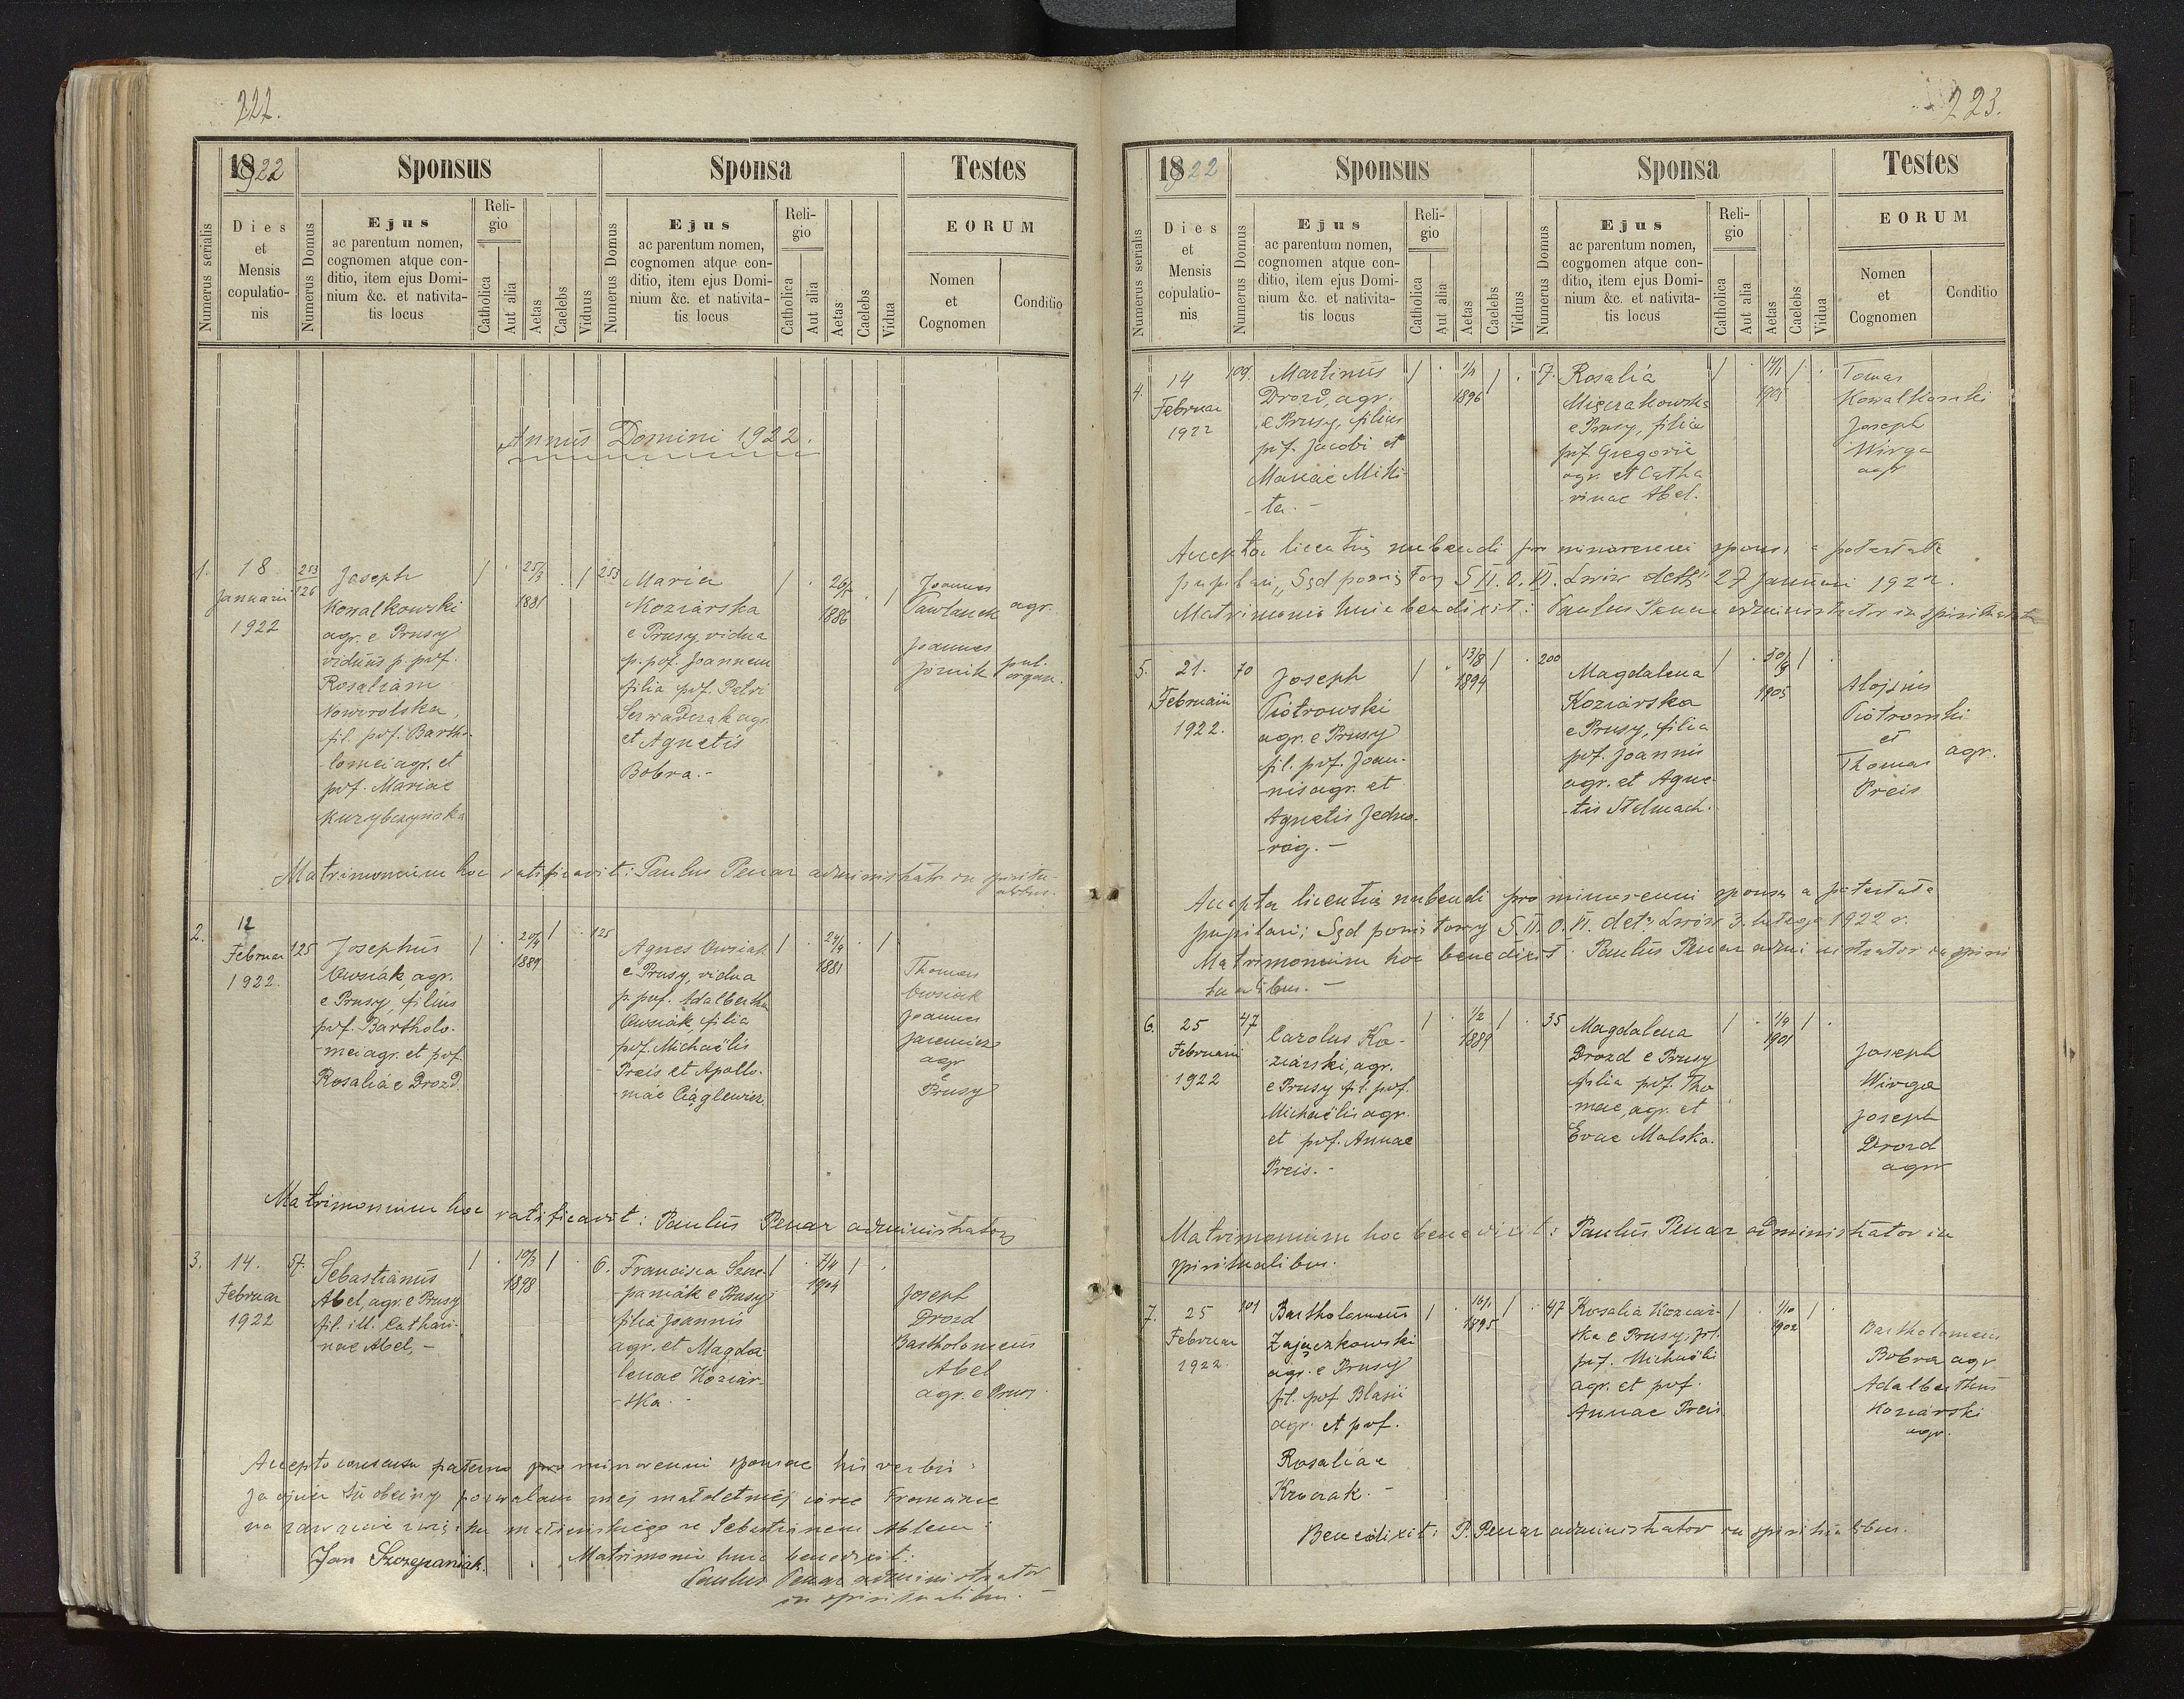 222.
1922
Sponsus
Sponsa
Testes
Numerus serialis
Dies
et
Mensis
copulatio-
nis
Numerus Domus
Ejus
ac parentum nomen,
cognomen atque con-
ditio, item ejus Domi-
nium &c. et nativita-
tis locus
Reli-
gio
Catholica
Aut alia
Aetas
Caelebs
Viduus
Numerus Domus
Ejus
ac parentum nomen,
cognomen atque con-
ditio, item ejus Domi-
nium &c. et nativita-
tis locus
Reli-
gio
Catholica
Aut alia
Aetas
Caelebs
Vidua
EORUM
Nomen
et
Cognomen
Conditio
Annus Domini 1922.
1.
18
Januarii
1922
253
126
Joseph
Kowalkowski
agr. e Prusy
viduus p. pof.
Rosaliam
fil. pof. Barth-
-lomei agr. et
pof. Mariae
25/3
1881
253
Maria
Koziarska
e Prusy, vidua
p. pof. Joannem
filia pof. Petri
et Agnetis
Bobra.-
1886
Joannes
Pawlanek agr.
Joannes
organ.
Matrimonium hoc ratificavit: Paulus Penar administrator in spiritu-
alibus.
2.
12
Februar
1922.
125
Josephus
Owsiak, agr.
e Prusy, filius
pof. Bartholo-
-mei agr. et pof.
Rosaliae Drozd
20/4
1889
125
Agnes Owsiak
e Prusy, vidua
p. pof. Adalberthu
Owsiak, filia
pof. Michaëlis
Preis et Apollo-
-niae Ciąglewicz.
24/9
1881
Thomas
Owsiak
Joannes
agr
e
Prusy
Matrimonium hoc ratificavit: Paulus Penar administrator
3.
14.
Februar
1922
57.
Sebastianus
Abel, agr. e Prusy
fil. ill. Cathari-
nae Abel, -
10/3
1898
6.
Francisca Szcze-
-paniak e Prusy
filia Joannis
agr. et Magda-
lenae Koziar-
-ska -
7/4
1904
Joseph
Drozd
Bartholomeus
Abel
agr. e Prusy.
Accepto consensu paterno pro minorenni sponsae his verbis:
Ja ojciec tu obecny pozwalam mej małoletniej córce Francisce
na zawarcie związku małżeńskiego ze Sebastianem Ablem:
Jan Szczepaniak. Matrimonio huic benedixit:
Paulus Penar administrator
in spiritualibus. -
223.
1922
Sponsus
Sponsa
Testes
Numerus serialis
Dies
et
Mensis
copulatio-
nis
Numerus Domus
Ejus
ac parentum nomen,
cognomen atque con-
ditio, item ejus Domi-
nium &c. et nativita-
tis locus
Reli-
gio
Catholica
Aut alia
Aetas
Caelebs
Viduus
Numerus Domus
Ejus
ac parentum nomen,
cognomen atque con-
ditio, item ejus Domi-
nium &c. et nativita-
tis locus
Reli-
gio
Catholica
Aut alia
Aetas
Caelebs
Vidua
EORUM
Nomen
et
Cognomen
Conditio
4.
14
Februar
1922
109.
Martinus
Drozd, agr.
e Prusy, filius
pof. Jacobi et
Mariae Miki-
-ta. -
1896
57.
Rosalia
e Prusy, filia
pof. Gregorii
agr. et Catha-
rinae Abel.
Tomas
Kowalkowski
Joseph
Wirga
agr
Accepta licentia nubendi pro minorenni sponsa a potestate
pupilari, Sąd powiatowy S II. O. VI. Lwów dctō 27 Januarii 1922.
Matrimonio huic benedixit: Paulus Penar administrator in spiritualibus
5.
21.
Februarii
1922.
70
Joseph
Piotrowski
agr. e Prusy
fil. pof. Joan-
-nis agr. et
Agnetis Jedno-
-róg. -
13/8
1894
200
Magdalena
Koziarska
e Prusy, filia
pof. Joannis
agr. et Agne-
-tis Stelmach.
1905
Alojsius
Piotrowski
et
Thomas
Preis
agr.
Accepta licentia nubendi pro minorenni sponsa a potestate
pupilari; Sąd powiatowy S. II. O. VI. dctō Lwów 3. lutego 1922 r.
Matrimonium hoc benedixit: Paulus Penar administrator in spiri-
tualibus. -
6.
25
Februarii
1922
47
Carolus Ko-
ziarski, agr.
e Prusy fil. pof.
Michaëlis agr.
et pof. Annae
Preis. -
1/2
1889
35
Magdalena
Drozd e Prusy
filia pof. Tho-
-mae, agr. et
Evae Malska.
1901
Joseph
Wirga
Joseph
Drozd
agr
Matrimonium hoc benedixit: Paulus Penar administrator in
spiritualibus.
7.
25
Februar
1922
201
Bartholomeus
Zajączkowski
agr. e Prusy
fil. pof Blasii
agr. et pof.
Rosaliae
16/1
1895
47
Rosalia Koziar-
ska e Prusy, fil.
pof. Michaëlis
agr. et pof.
Annae Preis
1/10
1902
Bartholomeus
Bobra agr
Adalberthus
Koziarski
agr.
Benedixit: P. Penar administrator in spiritualibus.